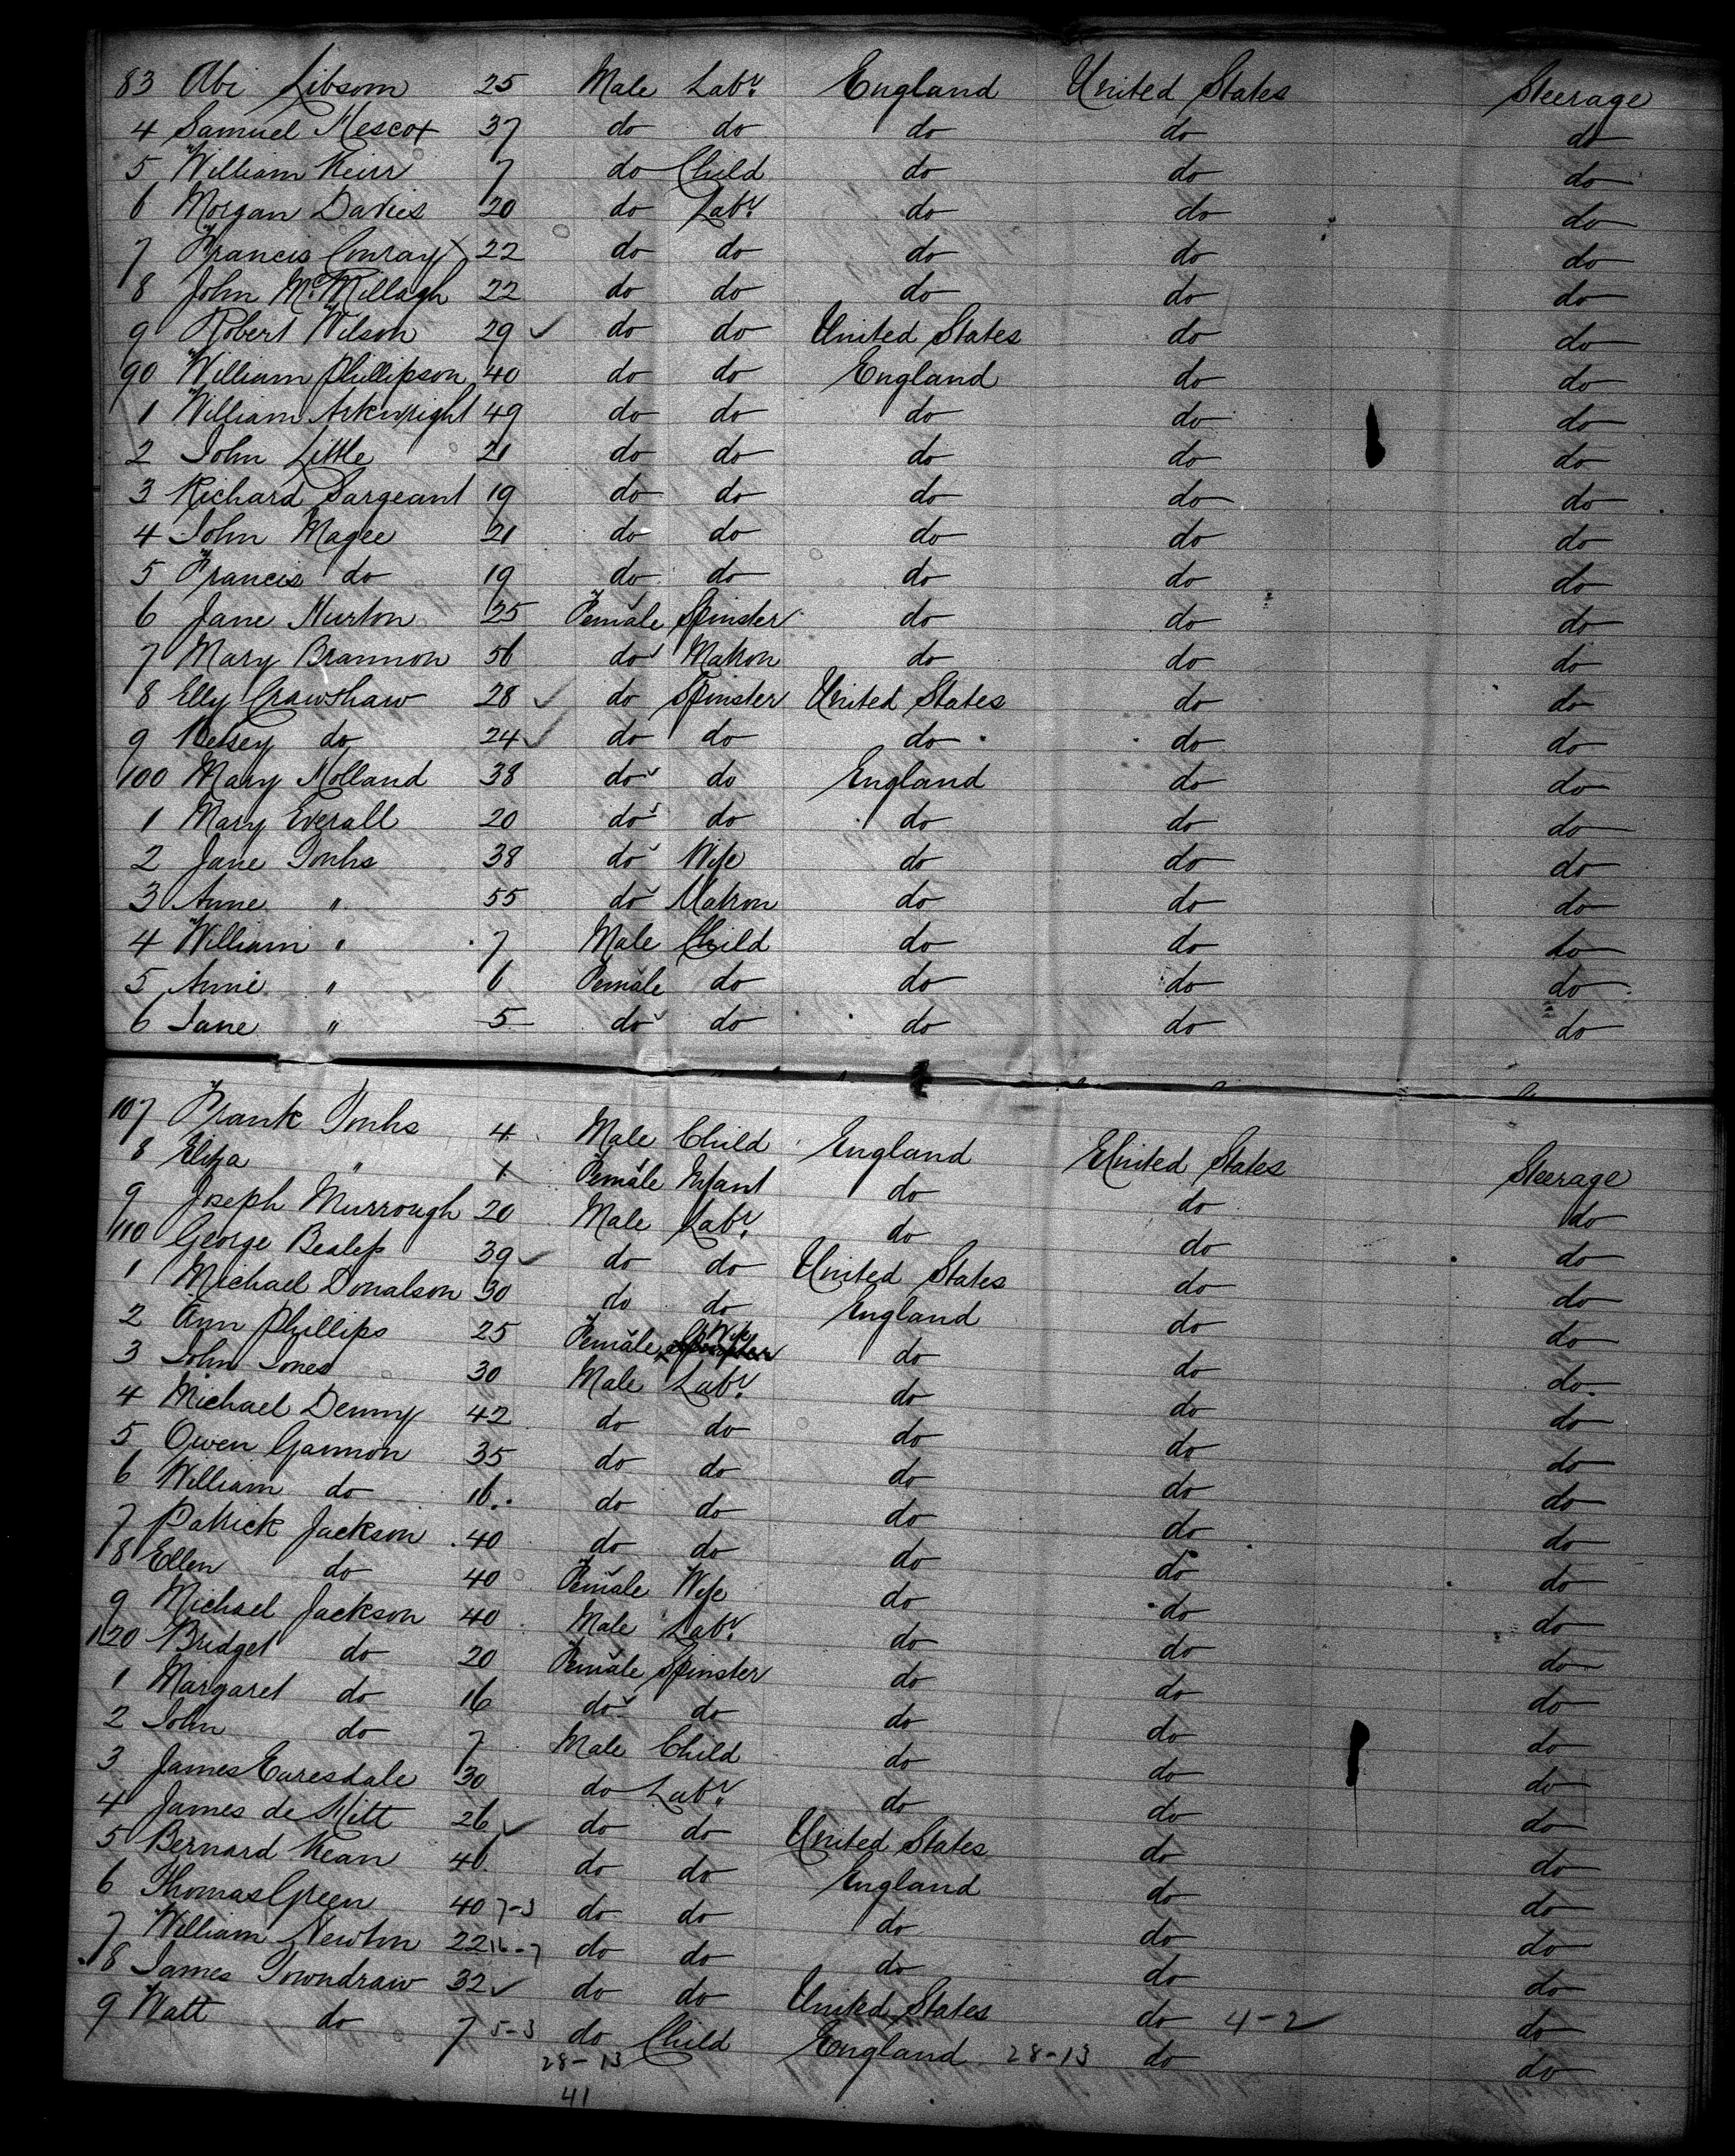 83 Abi Libsom 25 Male Labr. England United States Steerage
4 Samuel Mescot 37 do do do do do
5 William Keirr 7 do Child do do do
6 Morgan Davies 20 do Labr. do do do
7 Francis Conray 22 do do do do do
8 John McMillagh 22 do do do do do
9 Robert Wilson 29 ✓ do do United States do do
90 William Phillipson 40 do do England do do
1 William Arkwright 49 do do do do do
2 John Little 21 do do do do do
3 Richard Sargeant 19 do do do do do
4 John Magee 21 do do do do do
5 Francis do 19 do do do do do
6 Jane Hurton 25 Female Spinster do do do
7 Mary Brannon 56 do Matron do do do
8 Elly Crawshaw 28 ✓ do Spinster United States do do
9 Betsey do 24 ✓ do do do do do
100 Mary Holland 38 do do England do do
1 Mary Everall 20 do do do do do
2 Jane Tonhs 38 do Wife do do do
3 Anne " 55 do Matron do do do
4 William " 7 Male Child do do do
5 Annie " 6 Female do do do do
6 Jane " 5 do do do do do
107 Frank Tonhs 4 Male Child England United States Steerage
8 Eliza " 1 Female Infant do do do
9 Joseph Murrough 20 Male Labr. do do do
110 George 39 ✓ do do United States do do
1 Michael Donalson 30 do do England do do
2 Ann Phillips 25 Female Wife do do do
3 John Jones 30 Male Labr. do do do
4 Michael Denny 42 do do do do do
5 Owen Gannon 35 do do do do do
6 William do 16 do do do do do
7 Patrick Jackson 40 do do do do do
8 Ellen do 40 Female Wife do do do
9 Michael Jackson 40 Male Labr. do do do
120 Bridget do 20 Female Spinster do do do
1 Margaret do 16 do do do do do
2 John do 7 Male Child do do do
3 James Earesdale 30 do Labr. do do do
4 James de Witt 26 ✓ do do United States do do
5 Bernard Kean 46 do do England do do
6 Thomas Green 40 7-3 do do do do do
7 William Newton 22 16-7 do do do do do
8 James Towndraw 32 ✓ do do United States do 4-2 ✓ do
9 Watt do 7 5-3 do Child England 28-13 do do
28-13
41